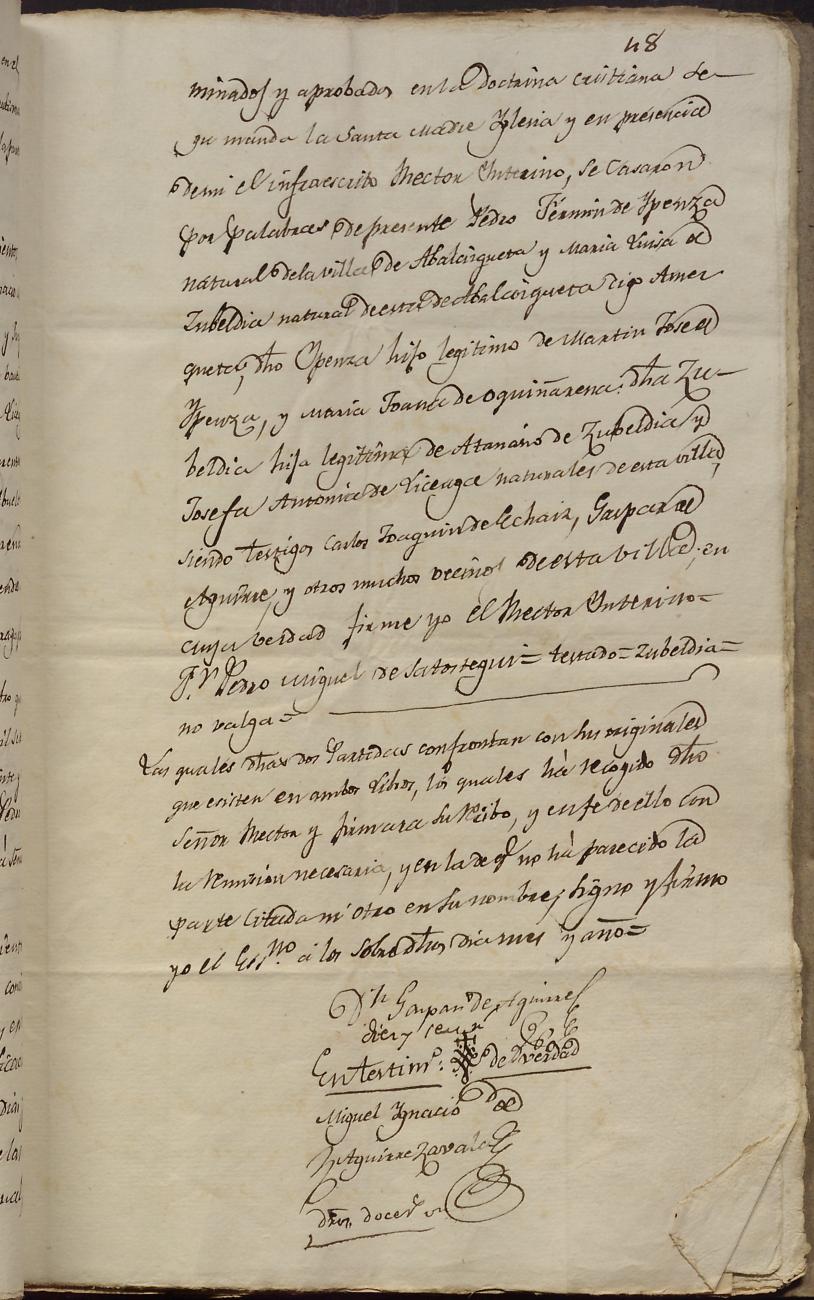 48
minados y aprobados en la Doctrina cristiana se
gu manda la Santa Madre Yglesia y en presencia
de mi el infraescrito Rector Ynterino, se Casaron
por palabras de presente Pedro Fermin de Ypenza
natural de la villa de Abalcisqueta y Maria Luisa de
Zubeldia natural de esta de Abalcisqueta digo Amez
queta, dho Ypenza hijo legitimo de Martin Jose de
Ypenza, y Maria Joana de Oquiñarena: dha Zu-
beldia hija legitima de Atanasio de Zubeldia y
Josefa Antonia de Liceaga naturales de esta villa,
siendo testigos Carlos Joaquin de Echaiz, Gaspar de
Aguirre, y otros muchos vecinos de esta villa; en
cuya verdad firme yo el Rector Ynterino=
Pedro Miguel de Satostegui= testado= Zubeldia=
no valga=
Las quales dhas dos Partidas confrontan con sus originales
que esisten en ambos Libros, los quales hà recogido dho
Señor Rector y firmara su Recibo, y en fe de ello con
la Remision necesaria, y en la de q.e no hà parecido la
parte Citada ni otro en su nombre, signo y firmo
yo el Ess.no à los sobredhos dia mes y año=
Gaspar de Aguirre
En testim.o de verdad
Miguel Ygnacio de
Aguirre Zavala
dros. doce rs. vn